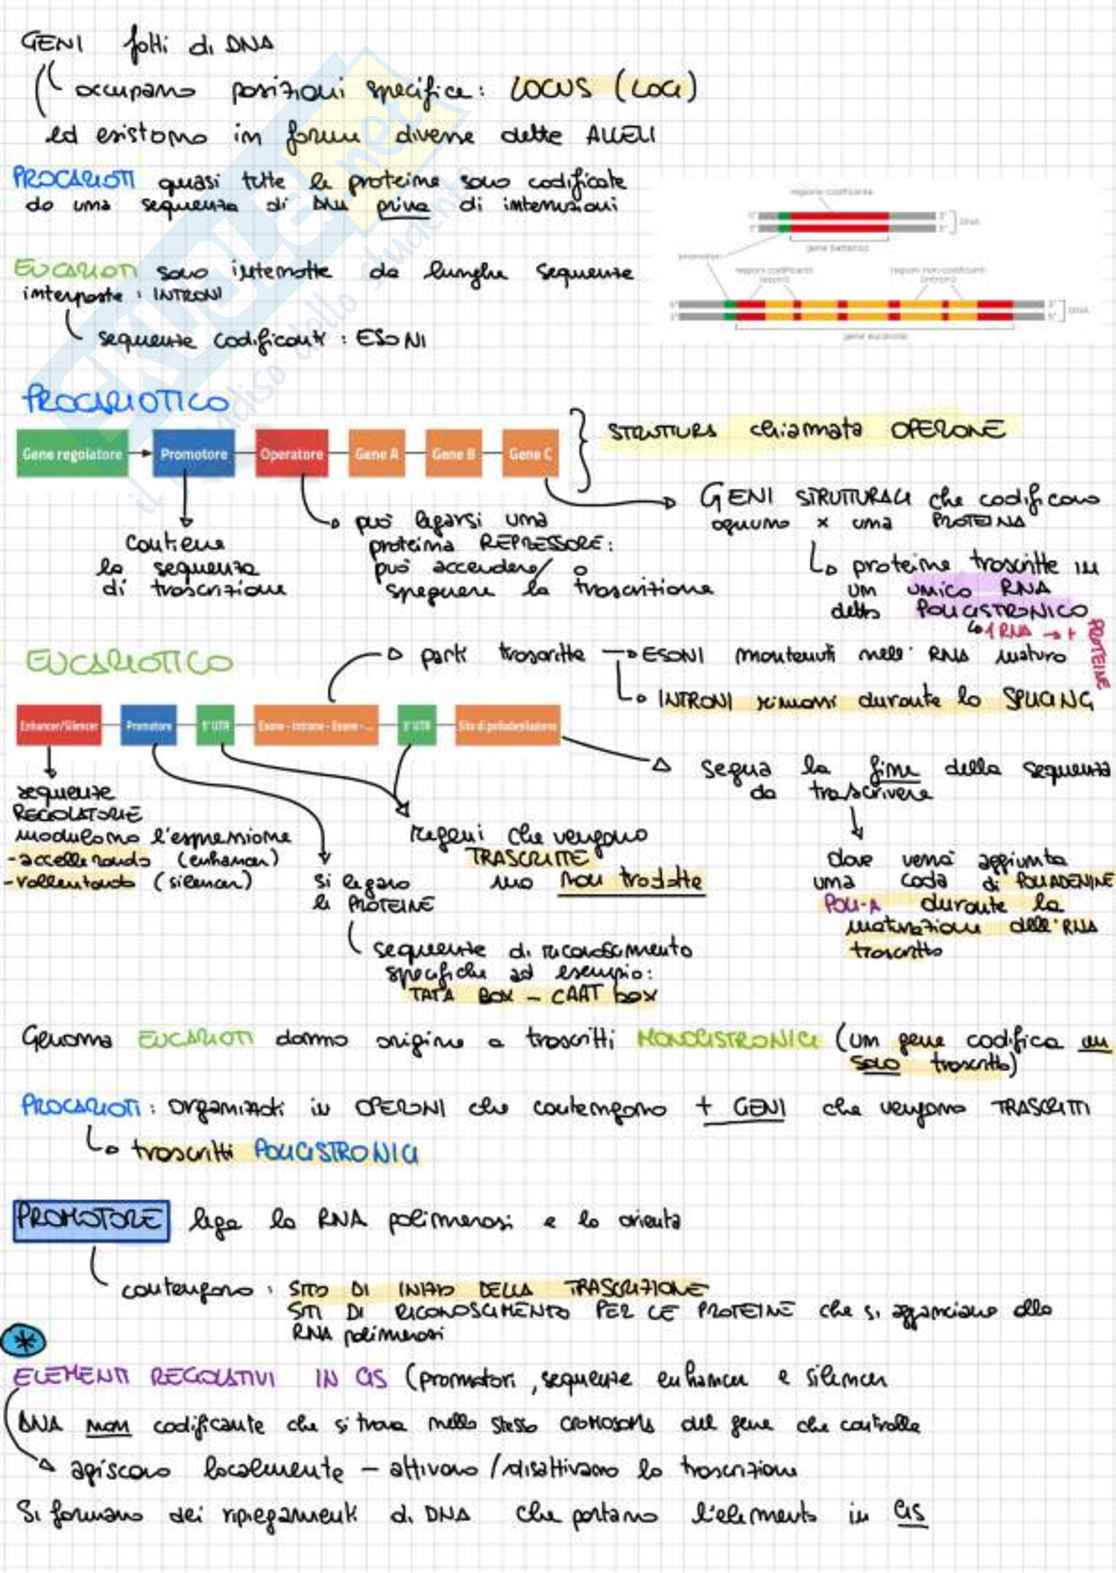 GENI fatti di DNA
occupano posizioni specifiche: LOCUS (LOCI)
ed esistono in forme diverse dette ALLELI
PROCARIOTI quasi tutte le proteine sono codificate
da una sequenza di DNA priva di interruzioni
regione codificante
5' 3'
3' 5' DNA
gene batterico
promotore
EUCARIOTI sono interrotte da lunghe sequenze
interposte: INTRONI
regioni codificanti (esoni)
regioni non codificanti (introni)
5' 3'
3' 5' DNA
gene eucariotico
sequenze codificanti: ESONI
PROCARIOTICO
Gene regolatore Promotore Operatore Gene A Gene B Gene C
STRUTTURA chiamata OPERONE
GENI STRUTTURALI che codificano
ognuno x una PROTEINA
contiene
la sequenza
di trascrizione
può legarsi una
proteina REPRESSORE:
può accendere/ o
spegnere la trascrizione
proteine trascritte in
un unico RNA
detto POLICISTRONICO
1 RNA → + PROTEINE
EUCARIOTICO
parti trascritte → ESONI mantenuti nell' RNA maturo
INTRONI rimossi durante lo SPLICING
Enhancer/Silencer Promotore 5' UTR Esone - Introne - Esone - ... 3' UTR Sito di poliadenilazione
segna la fine della sequenza
da trascrivere
sequenze
REGOLATORIE
modulano l'espressione
- accellerando (enhancer)
- rallentando (silencer)
si legano
le PROTEINE
regioni che vengono
TRASCRITTE
ma non tradotte
dove verrà aggiunta
una coda di POLIADENINE
POLI-A durante la
maturazione dell'RNA
trascritto
sequenze di riconoscimento
specifiche ad esempio:
TATA BOX - CAAT box
Genoma EUCARIOTI danno origine a trascritti MONOCISTRONICI (un gene codifica un
solo trascritto)
PROCARIOTI: organizzati in OPERONI che contengono + GENI che vengono TRASCRITTI
trascritti POLICISTRONICI
PROMOTORE lega la RNA polimerasi e la orienta
contengono: SITO DI INIZIO DELLA TRASCRIZIONE
SITI DI RICONOSCIMENTO PER LE PROTEINE che si agganciano alla
RNA polimerasi
*
ELEMENTI REGOLATIVI IN CIS (promotori, sequenze enhancer e silencer
DNA non codificante che si trova nello stesso CROMOSOMA del gene che controlla
agiscono localmente - attivano / disattivano la trascrizione
Si formano dei ripiegamenti di DNA che portano l'elemento in CIS